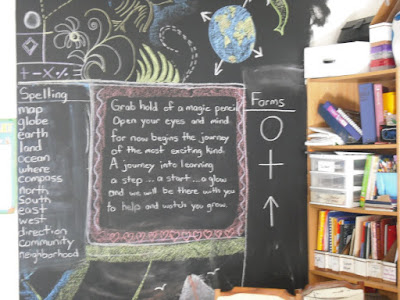 + - × % =
Spelling
map
globe
earth
land
ocean
where
compass
north
South
east
west
direction
community
neighborhood
Grab hold of a magic pencil
Open your eyes and mind
for now begins the journey
of the most exciting kind.
A journey into learning
a step...a start...a glow
and we will be there with you
to help and watch you grow.
Forms